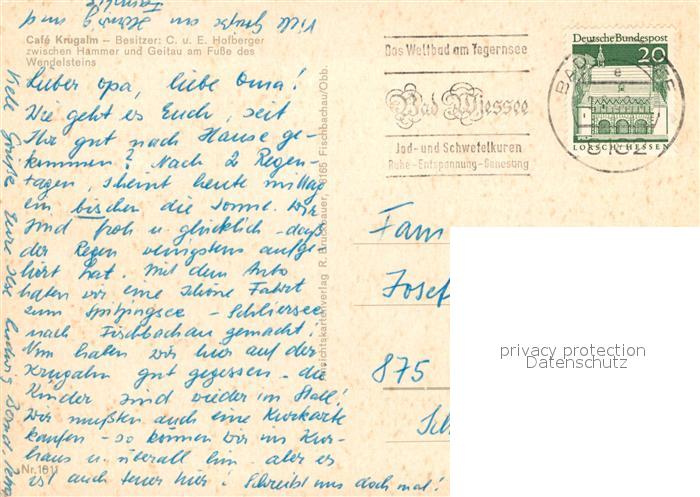 Café Krugalm – Besitzer: C. u. E. Hofberger
zwischen Hammer und Geitau am Fuße des
Wendelsteins
Lieber Opa, liebe Oma!
Wie geht es Euch, seit
Ihr gut nach Hause ge-
kommen? Nach 2 Regen-
tagen, scheint heute mittag
ein bischen die Sonne. Wir
sind froh u. glücklich – daß
der Regen wenigstens aufge-
hört hat. Mit dem Auto
haben wir eine schöne Fahrt
zum Spitzingsee – Schliersee
nach Fischbachau gemacht!
Nun haben wir hier auf der
Krugalm gut gegessen – die
Kinder sind wieder im Stall!
Wir mußten auch eine Kurkarte
kaufen – so können wir ins Kur-
haus u. überall hin aber es
ist auch teuer hier! Schreibt uns doch mal!
Viele Grüße Eure Ilse Ludwig Bernd
Viele Grüße an und
Familie
Nr. 1611
Ansichtskartenverlag R. Bruckbauer, 8165 Fischbachau/Obb.
Das Weltbad am Tegernsee
Bad Wiessee
Jod- und Schwefelkuren
Ruhe-Entspannung-Genesung
Deutsche Bundespost
20
LORSCH/HESSEN
BAD
e
8182
Fam
Josef
875
privacy protection
Datenschutz